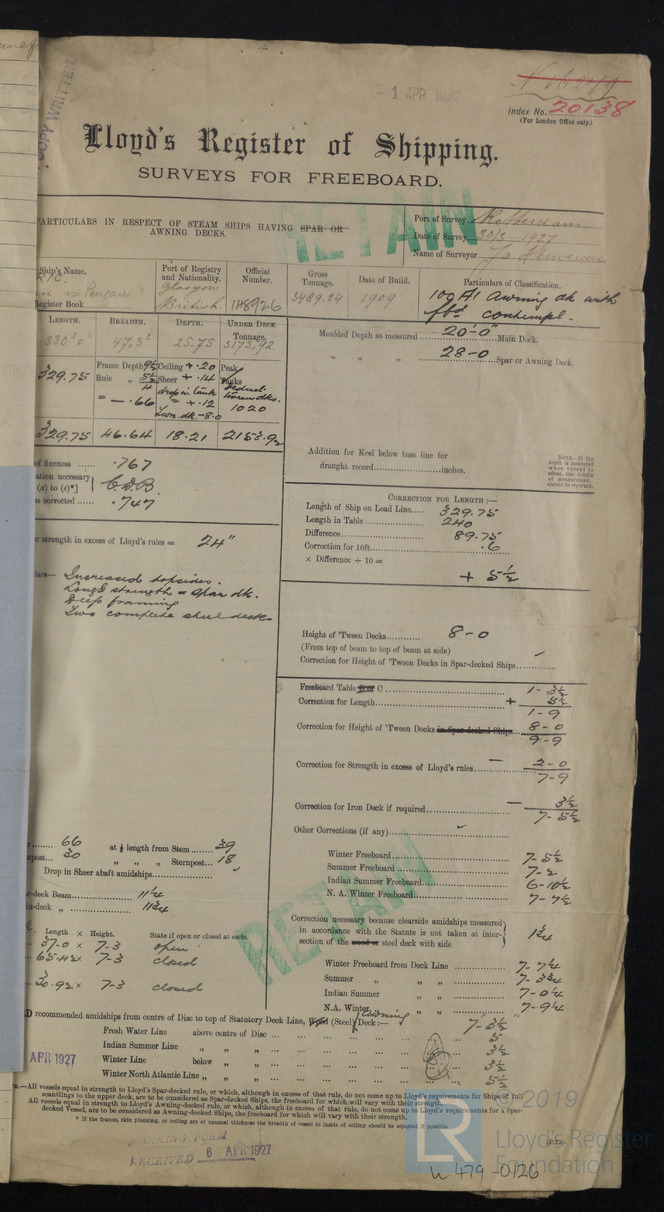 COPY WRITTEN
- 1 APR 1927
Index No. 20138
(For London Office only.)
Lloyd's Register of Shipping.
SURVEYS FOR FREEBOARD.
RETAIN
PARTICULARS IN RESPECT OF STEAM SHIPS HAVING SPAR OR
AWNING DECKS.
Port of Survey Rotterdam
Date of Survey 30/3 1927
Name of Surveyor
Ship's Name.
Register Book
Port of Registry
and Nationality.
Glasgow
British
Official
Number.
148926
Gross
Tonnage.
3489.24
Date of Build.
1909
Particulars of Classification.
100 A1 Awning dk with
fbd contempl.
LENGTH. BREADTH. DEPTH. UNDER DECK
Tonnage.
330.0 47.3 25.75 3173.92
329.75
Frame Depth 9½
Rule " 5½
4
= - .66
Ceiling + .20
Sheer + .14
drop in tank
= + .12
Twn. dk - 8.0
Peak
Tanks
deduct
tween dks.
1020
329.75 46.64 18.21 2153.92
of fineness ...... .767
ation necessary
(a) to (e)*] C.D.B.
as corrected ...... .747
Moulded Depth as measured 20-0" Main Deck.
" " " 28-0 Spar or Awning Deck.
Addition for Keel below base line for
draught record inches.
NOTE.—If the
depth is measured
when vessel is
afloat, the details
of measurement
should be reported.
CORRECTION FOR LENGTH :—
Length of Ship on Load Line 329.75
Length in Table 240
Difference 89.75
Correction for 10ft. .6
× Difference ÷ 10 =
+ 5½
r strength in excess of Lloyd's rules = 24"
lars— Increased topsides.
Longl strength = spar dk.
Deep framing
Two complete steel decks
Height of 'Tween Decks 8-0
(From top of beam to top of beam at side)
Correction for Height of 'Tween Decks in Spar-decked Ships
Freeboard Table C 1- 3½
Correction for Length + 5½
1-9
Correction for Height of 'Tween Decks in Spar-decked Ships 8-0
9-9
Correction for Strength in excess of Lloyd's rules — 2-0
7-9
Correction for Iron Deck if required — 3½
7- 5½
Other Corrections (if any)
Winter Freeboard 7-5½
Summer Freeboard 7-2
Indian Summer Freeboard 6-10½
N. A. Winter Freeboard 7-7½
66 at ⅛ length from Stem 39
npost 30 " " " Sternpost 18
Drop in Sheer abaft amidships
r-deck Beam 11¼
n-deck " 11¾
Length × Height. State if open or closed at ends.
37.0 × 7-3 open
65.42 × 7-3 closed
30.92 × 7-3 closed
RETAIN
Correction necessary because clearside amidships measured
in accordance with the Statute is not taken at inter-
section of the wood or steel deck with side
1¾
Winter Freeboard from Deck Line 7-7¼
Summer " " 7-3¾
Indian Summer " " 7-0¼
N.A. Winter " " 7-9¼
D recommended amidships from centre of Disc to top of Statutory Deck Line, Wood (Steel) Awning Deck:— 7-3½
Fresh Water Line above centre of Disc 5
Indian Summer Line " " " 3½
Winter Line below " " 3½
Winter North Atlantic Line " " " 5½
APR 1927
—All vessels equal in strength to Lloyd's Spar-decked rule, or which, although in excess of that rule, do not come up to Lloyd's requirements for Ships of full
scantlings to the upper deck, are to be considered as Spar-decked Ships, the freeboard for which will vary with their strength.
All vessels equal in strength to Lloyd's Awning-decked rule, or which, although in excess of that rule, do not come up to Lloyd's requirements for a Spar
decked Vessel, are to be considered as Awning-decked Ships, the freeboard for which will vary with their strength.
* If the frames, skin planking, or ceiling are of unusual thickness the breadth of vessel to inside of ceiling should be reported if possible.
P.T.O.
RECEIVED 6 APR 1927
W 479-0126
LR
© 2019
Lloyd's Register
Foundation